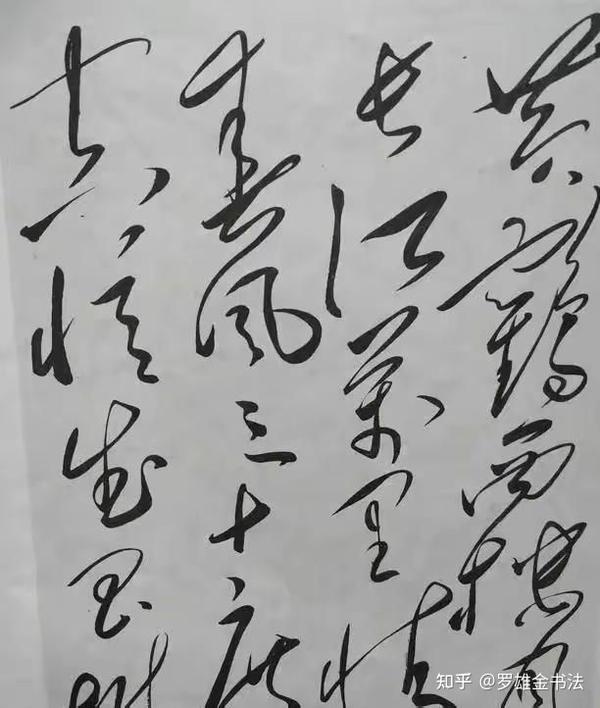 黄鹤西楼月
长江万里情
春风三十度
忆武昌
知乎 @罗雄金书法